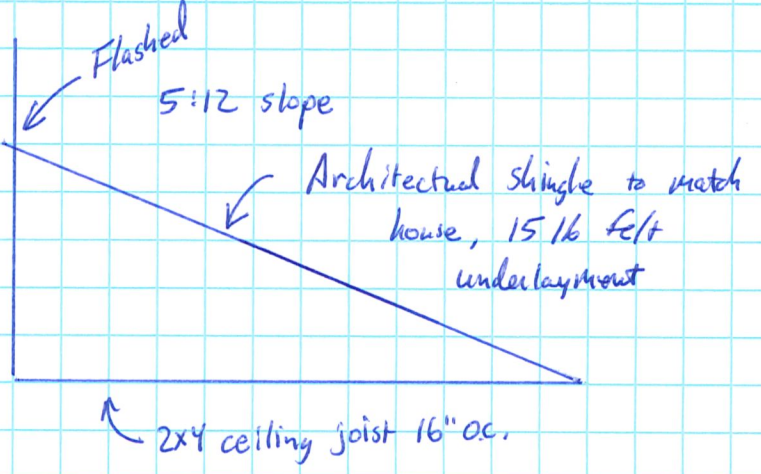 Flashed
5:12 slope
Architectual shingle to match
house, 15 lb felt
underlayment
2x4 ceiling joist 16" o.c.